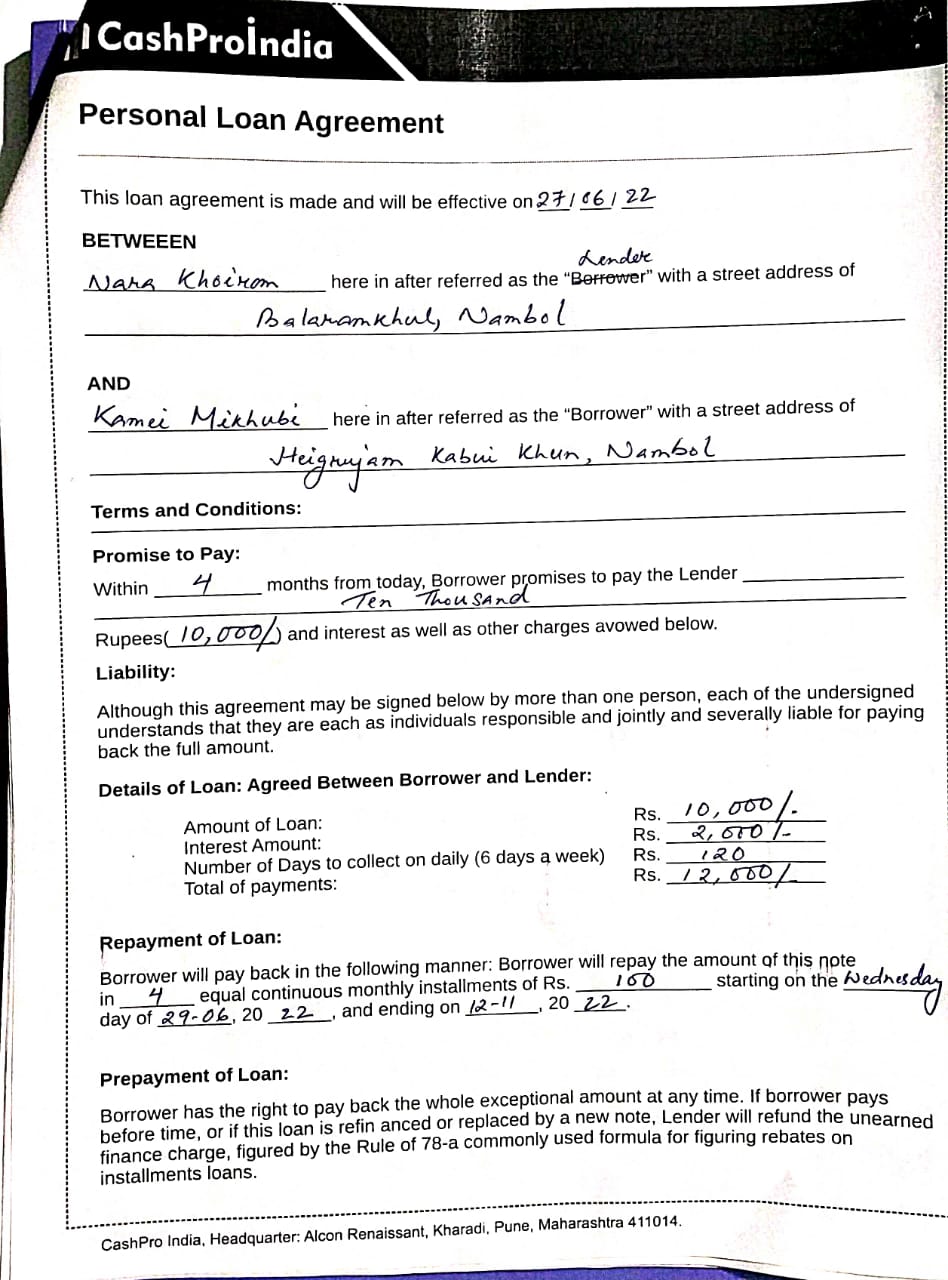 CashProİndia
Personal Loan Agreement
This loan agreement is made and will be effective on 27/06/22
BETWEEEN
Lender
Nara Khoirom here in after referred as the “Borrower” with a street address of
Balaramkhul, Nambol
AND
Kamei Mikhubi here in after referred as the “Borrower” with a street address of
Heigrujam Kabui Khun, Nambol
Terms and Conditions:
Promise to Pay:
Within 4 months from today, Borrower promises to pay the Lender
Ten Thousand
Rupees( 10,000/-) and interest as well as other charges avowed below.
Liability:
Although this agreement may be signed below by more than one person, each of the undersigned
understands that they are each as individuals responsible and jointly and severally liable for paying
back the full amount.
Details of Loan: Agreed Between Borrower and Lender:
Amount of Loan: Rs. 10,000/-
Interest Amount: Rs. 2,000/-
Number of Days to collect on daily (6 days a week) Rs. 120
Total of payments: Rs. 12,000/-
Repayment of Loan:
Borrower will pay back in the following manner: Borrower will repay the amount of this note
in 4 equal continuous monthly installments of Rs. 100 starting on the Wednesday
day of 29-06, 20 22, and ending on 12-11, 20 22.
Prepayment of Loan:
Borrower has the right to pay back the whole exceptional amount at any time. If borrower pays
before time, or if this loan is refin anced or replaced by a new note, Lender will refund the unearned
finance charge, figured by the Rule of 78-a commonly used formula for figuring rebates on
installments loans.
CashPro India, Headquarter: Alcon Renaissant, Kharadi, Pune, Maharashtra 411014.